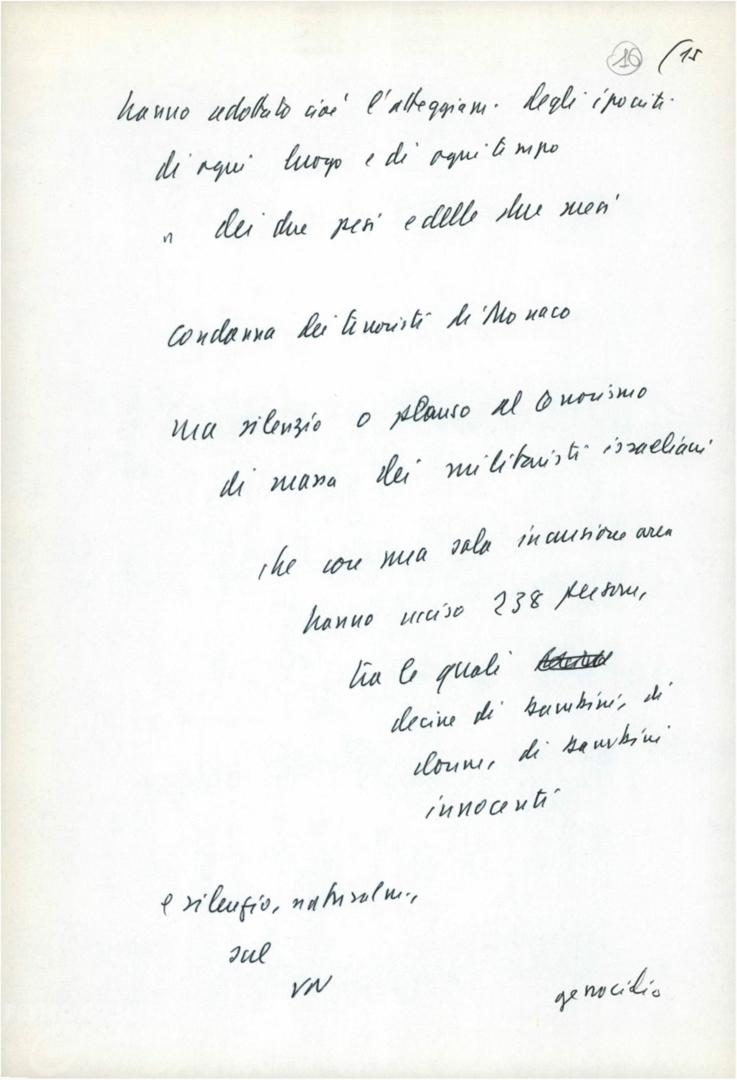 16 (15
hanno adottato cioè l'atteggiam. degli ipocriti
di ogni luogo e di ogni tempo
dei due pesi e delle due misi
condanna dei terroristi di Monaco
ma silenzio o plauso al terrorismo
di massa dei militaristi israeliani
che con una sola incursione aerea
hanno ucciso 238 persone,
tra le quali
decine di bambini, di
donne, di bambini
innocenti
e silenzio, naturalm.,
sul
VN
genocidio